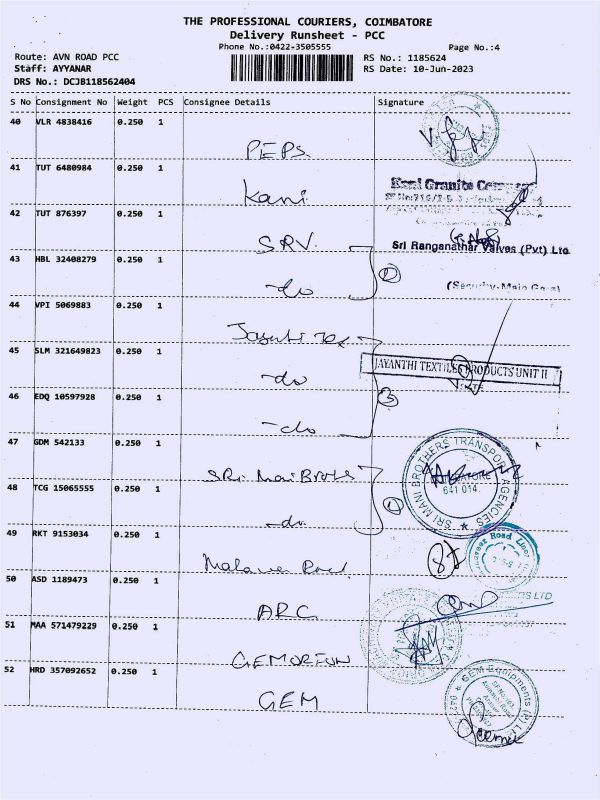 THE PROFESSIONAL COURIERS, COIMBATORE
Delivery Runsheet - PCC
Phone No.:0422-3505555
Page No.:4
Route: AVN ROAD PCC
RS No.: 1185624
Staff: AYYANAR
RS Date: 10-Jun-2023
DRS No.: DCJB118562404
S No Consignment No Weight PCS Consignee Details Signature
40 VLR 4838416 0.250 1
PEPS
41 TUT 6480984 0.250 1
Kani
Kani Granite
42 TUT 876397 0.250 1
SRV
Sri Ranganathar Valves (Pvt) Ltd
43 HBL 32408279 0.250 1
-do
(Security-Main Gate)
44 VPI 5069883 0.250 1
Jayanthi Tex
45 SLM 321649823 0.250 1
-do
JAYANTHI TEXTILE PRODUCTS UNIT II
46 EDQ 10597928 0.250 1
-do
47 GDM 542133 0.250 1
Sri Mani Broths
SRI MANI BROTHERS TRANSPORT AGENCIES
641 014.
48 TCG 15065555 0.250 1
-do
49 RKT 9153034 0.250 1
Malawar Road
50 ASD 1189473 0.250 1
ARC
51 MAA 571479229 0.250 1
GEMORION
52 HRD 357092652 0.250 1
GEM
GEM Equipments (P) Ltd